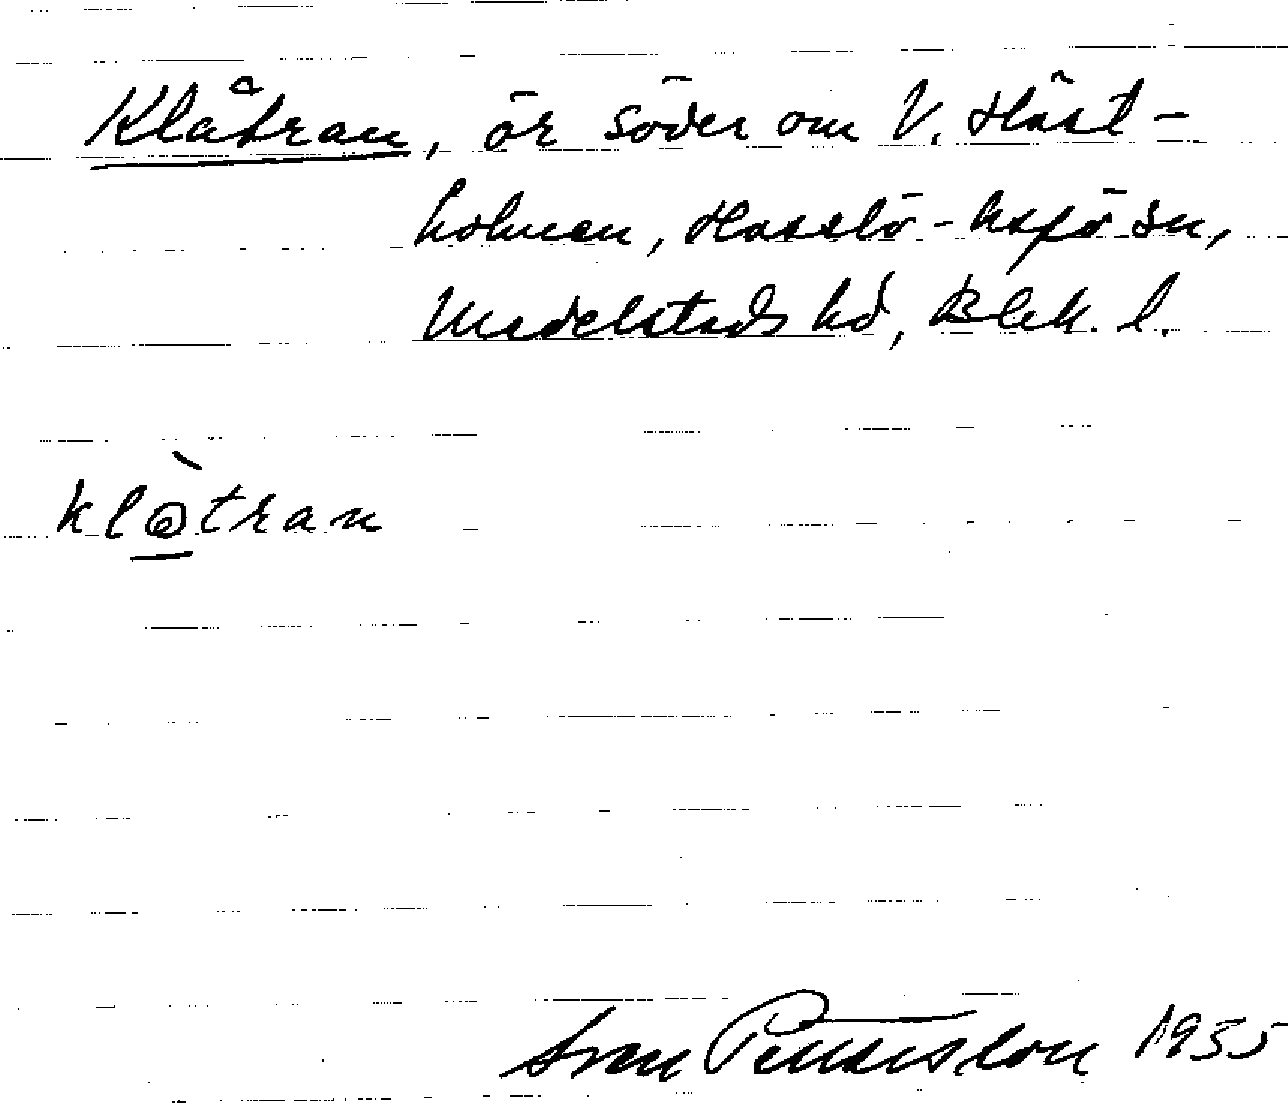 Klåtran, ör söder om V. Häst-
holmen, Hasslö-Aspö sn,
Medelstads hd, Blek. l.
klåtran
Sven Pettersson 1935